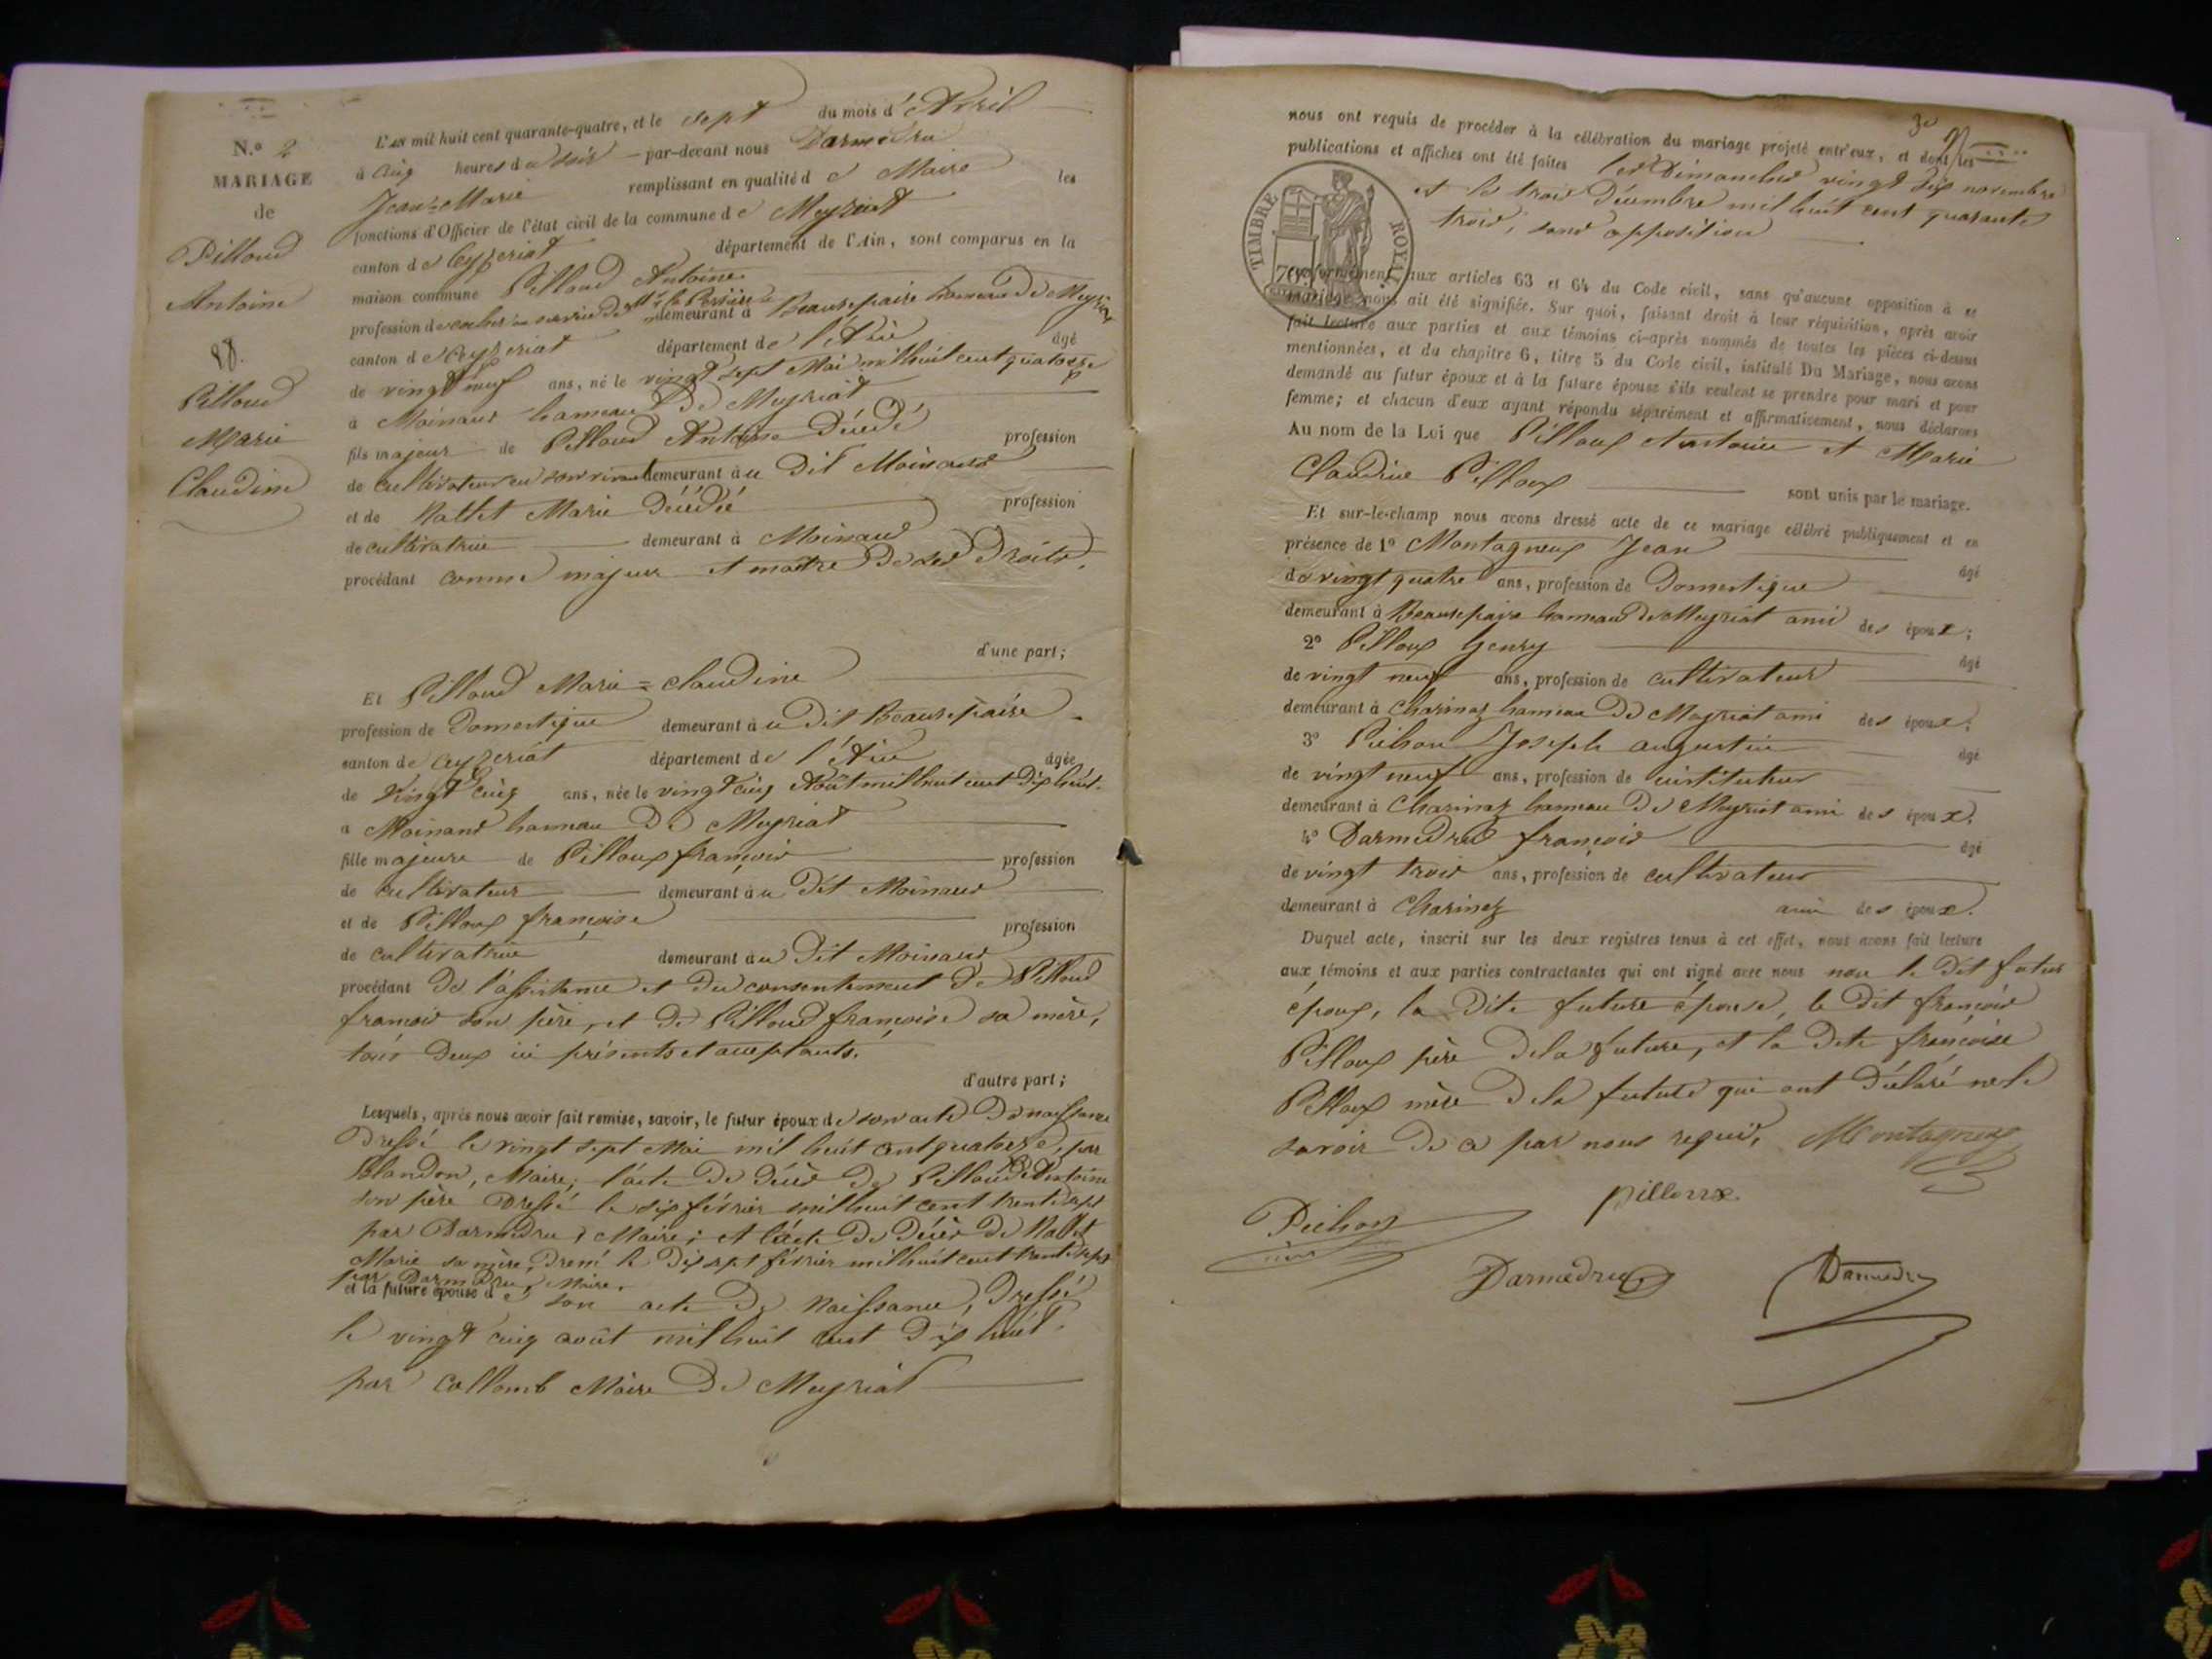 N.º 2
MARIAGE
de
Pilloud
Antoine
&
Pilloud
Marie
Claudine
L'an mil huit cent quarante-quatre, et le sept du mois d'Avril
à cinq heures du soir par-devant nous Darmedru
Jean=Marie remplissant en qualité de Maire les
fonctions d'Officier de l'état civil de la commune de Meyriat
canton de Ceyzeriat département de l'Ain, sont comparus en la
maison commune Pilloud Antoine
profession de demeurant à Beaurepaire hameau de Meyriat
canton de Ceyzeriat département de l'Ain âgé
de vingt neuf ans, né le vingt sept Mai mil huit cent quatorze
à Moinans hameau de Meyriat
fils majeur de Pilloud Antoine Décédé profession
de cultivateur en son vivant demeurant au dit Moinans
et de Nallet Marie Décédée profession
de cultivatrice demeurant à Moinans
procédant comme majeur et maître de ses Droits.
d'une part;
Et Pilloud Marie=Claudine
profession de Domestique demeurant au dit Beaurepaire
canton de Ceyzeriat département de l'Ain âgée
de Vingt cinq ans, née le vingt cinq Août mil huit cent dix huit.
à Moinans hameau de Meyriat
fille majeure de Pilloux françois profession
de cultivateur demeurant au dit Moinans
et de Pilloux françoise profession
de cultivatrice demeurant au dit Moinans
procédant de l'assistance et du consentement de Pilloud
francois son père, et de Pilloud françoise sa mère,
tous deux ici présents et acceptants.
d'autre part;
Lesquels, après nous avoir fait remise, savoir, le futur époux de son acte de naissance
Dressé le vingt sept Mai mil huit cent quatorze, par
Blandon, Maire; l'acte de décès de Pilloud Antoine
son père Dressé le six février mil huit cent trente sept
par Darmedru, Maire; et l'acte de décès de Nallet
Marie sa mère, Dressé le dix sept février mil huit cent trente sept
par Darmedru, Maire.
et la future épouse de son acte de Naissance, Dressé
le vingt cinq août mil huit cent dix huit.
par Collomb Maire de Meyriat
nous ont requis de procéder à la célébration du mariage projeté entr'eux, et dont les
publications et affiches ont été faites les Dimanches vingt six novembre
et le trois Décembre mil huit cent quarante
trois, sans opposition
TIMBRE ROYAL
conformément aux articles 63 et 64 du Code civil, sans qu'aucune opposition à ce
mariage nous ait été signifiée. Sur quoi, faisant droit à leur réquisition, après avoir
fait lecture aux parties et aux témoins ci-après nommés de toutes les pièces ci-dessus
mentionnées, et du chapitre 6, titre 5 du Code civil, intitulé Du Mariage, nous avons
demandé au futur époux et à la future épouse s'ils veulent se prendre pour mari et pour
femme; et chacun d'eux ayant répondu séparément et affirmativement, nous déclarons
Au nom de la Loi que Pilloux Antoine et Marie
Claudine Pilloux sont unis par le mariage.
Et sur-le-champ nous avons dressé acte de ce mariage célébré publiquement et en
présence de 1º Montagneux Jean âgé
de vingt quatre ans, profession de Domestique
demeurant à Beaurepaire hameau de Meyriat ami des époux;
2º Pilloux Henry âgé
de vingt neuf ans, profession de cultivateur
demeurant à Charinaz hameau de Meyriat ami des époux;
3º Pichon Joseph augustin âgé
de vingt neuf ans, profession de instituteur
demeurant à Charinaz hameau de Meyriat ami des époux.
4º Darmedru françois âgé
de vingt trois ans, profession de cultivateur
demeurant à Charinaz ami des époux.
Duquel acte, inscrit sur les deux registres tenus à cet effet, nous avons fait lecture
aux témoins et aux parties contractantes qui ont signé avec nous non le dit futur
époux, la Dite future épouse, le Dit françois
Pilloux père de la future, et la Dite françoise
Pilloux mère de la future qui ont déclaré ne le
savoir de ce par nous requis. Montagneux
pilloux
Pichon
Darmedru
Darmedru